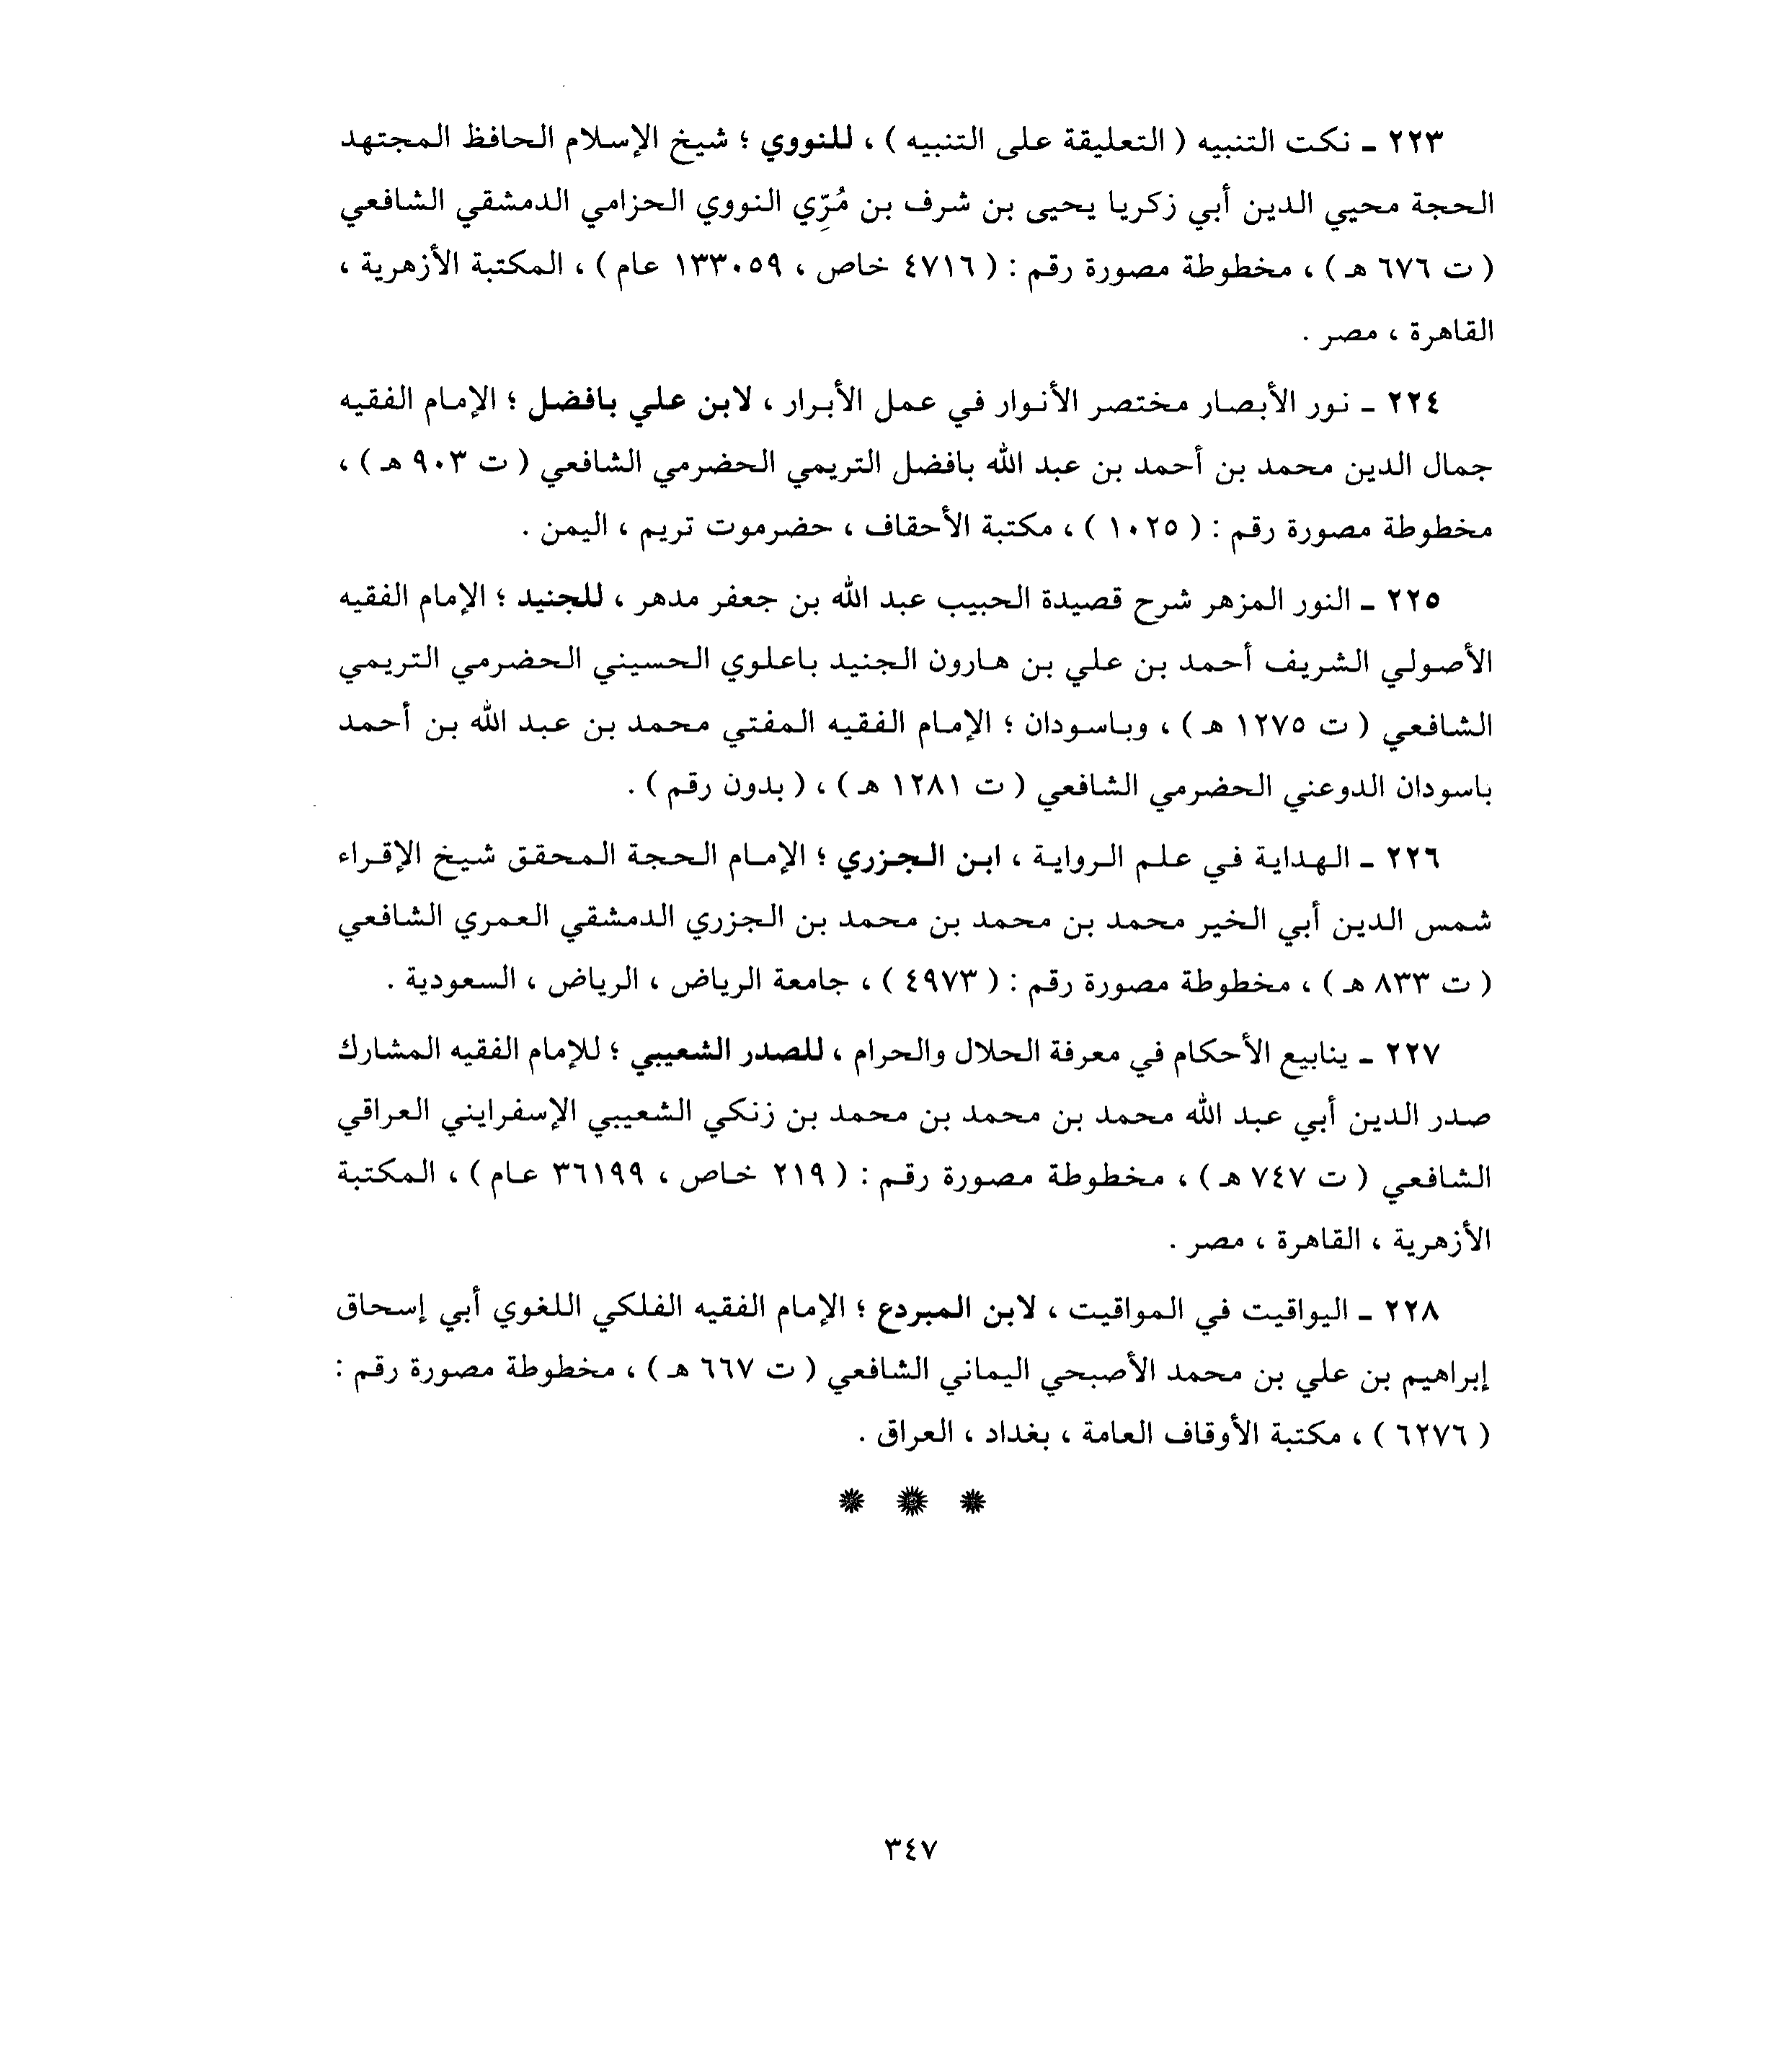 ٢٢٣ ـ نكت التنبيه ( التعليقة على التنبيه ) ، للنووي ؛ شيخ الإسلام الحافظ المجتهد
الحجة محيي الدين أبي زكريا يحيى بن شرف بن مُرِّي النووي الحزامي الدمشقي الشافعي
( ت ٦٧٦ هـ ) ، مخطوطة مصورة رقم : ( ٤٧١٦ خاص ، ١٣٣٠٥٩ عام ) ، المكتبة الأزهرية ،
القاهرة ، مصر .
٢٢٤ ـ نور الأبصار مختصر الأنوار في عمل الأبرار ، لابن علي بافضل ؛ الإمام الفقيه
جمال الدين محمد بن أحمد بن عبد الله بافضل التريمي الحضرمي الشافعي ( ت ٩٠٣ هـ ) ،
مخطوطة مصورة رقم : ( ١٠٢٥ ) ، مكتبة الأحقاف ، حضرموت تريم ، اليمن .
٢٢٥ ـ النور المزهر شرح قصيدة الحبيب عبد الله بن جعفر مدهر ، للجنيد ؛ الإمام الفقيه
الأصولي الشريف أحمد بن علي بن هارون الجنيد باعلوي الحسيني الحضرمي التريمي
الشافعي ( ت ١٢٧٥ هـ ) ، وباسودان ؛ الإمام الفقيه المفتي محمد بن عبد الله بن أحمد
باسودان الدوعني الحضرمي الشافعي ( ت ١٢٨١ هـ ) ، ( بدون رقم ) .
٢٢٦ ـ الهداية في علم الرواية ، ابن الجزري ؛ الإمام الحجة المحقق شيخ الإقراء
شمس الدين أبي الخير محمد بن محمد بن محمد بن الجزري الدمشقي العمري الشافعي
( ت ٨٣٣ هـ ) ، مخطوطة مصورة رقم : ( ٤٩٧٣ ) ، جامعة الرياض ، الرياض ، السعودية .
٢٢٧ ـ ينابيع الأحكام في معرفة الحلال والحرام ، للصدر الشعيبي ؛ للإمام الفقيه المشارك
صدر الدين أبي عبد الله محمد بن محمد بن محمد بن زنكي الشعيبي الإسفرايني العراقي
الشافعي ( ت ٧٤٧ هـ ) ، مخطوطة مصورة رقم : ( ٢١٩ خاص ، ٣٦١٩٩ عام ) ، المكتبة
الأزهرية ، القاهرة ، مصر .
٢٢٨ ـ اليواقيت في المواقيت ، لابن المبردع ؛ الإمام الفقيه الفلكي اللغوي أبي إسحاق
إبراهيم بن علي بن محمد الأصبحي اليماني الشافعي ( ت ٦٦٧ هـ ) ، مخطوطة مصورة رقم :
( ٦٢٧٦ ) ، مكتبة الأوقاف العامة ، بغداد ، العراق .
٣٤٧